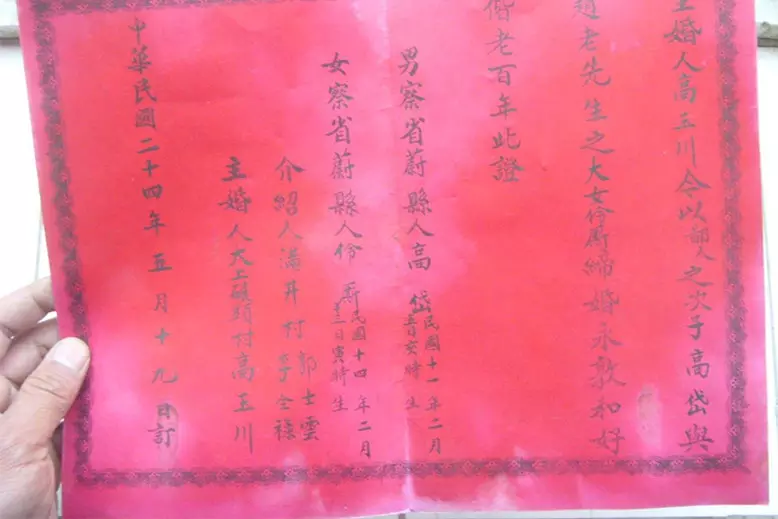 主婚人高玉川今以鄙人之次子高岱與
趙老先生之大女伶 締婚永敦和好
偕老百年此證
男察省蔚縣人高 岱民國十一年二月
日亥時生
女察省蔚縣人伶 民國十四年二月
日寅時生
介紹人滿井村郭士雲
李全祿
主婚人大上碾頭村高玉川
中華民國二十四年五月十九日訂